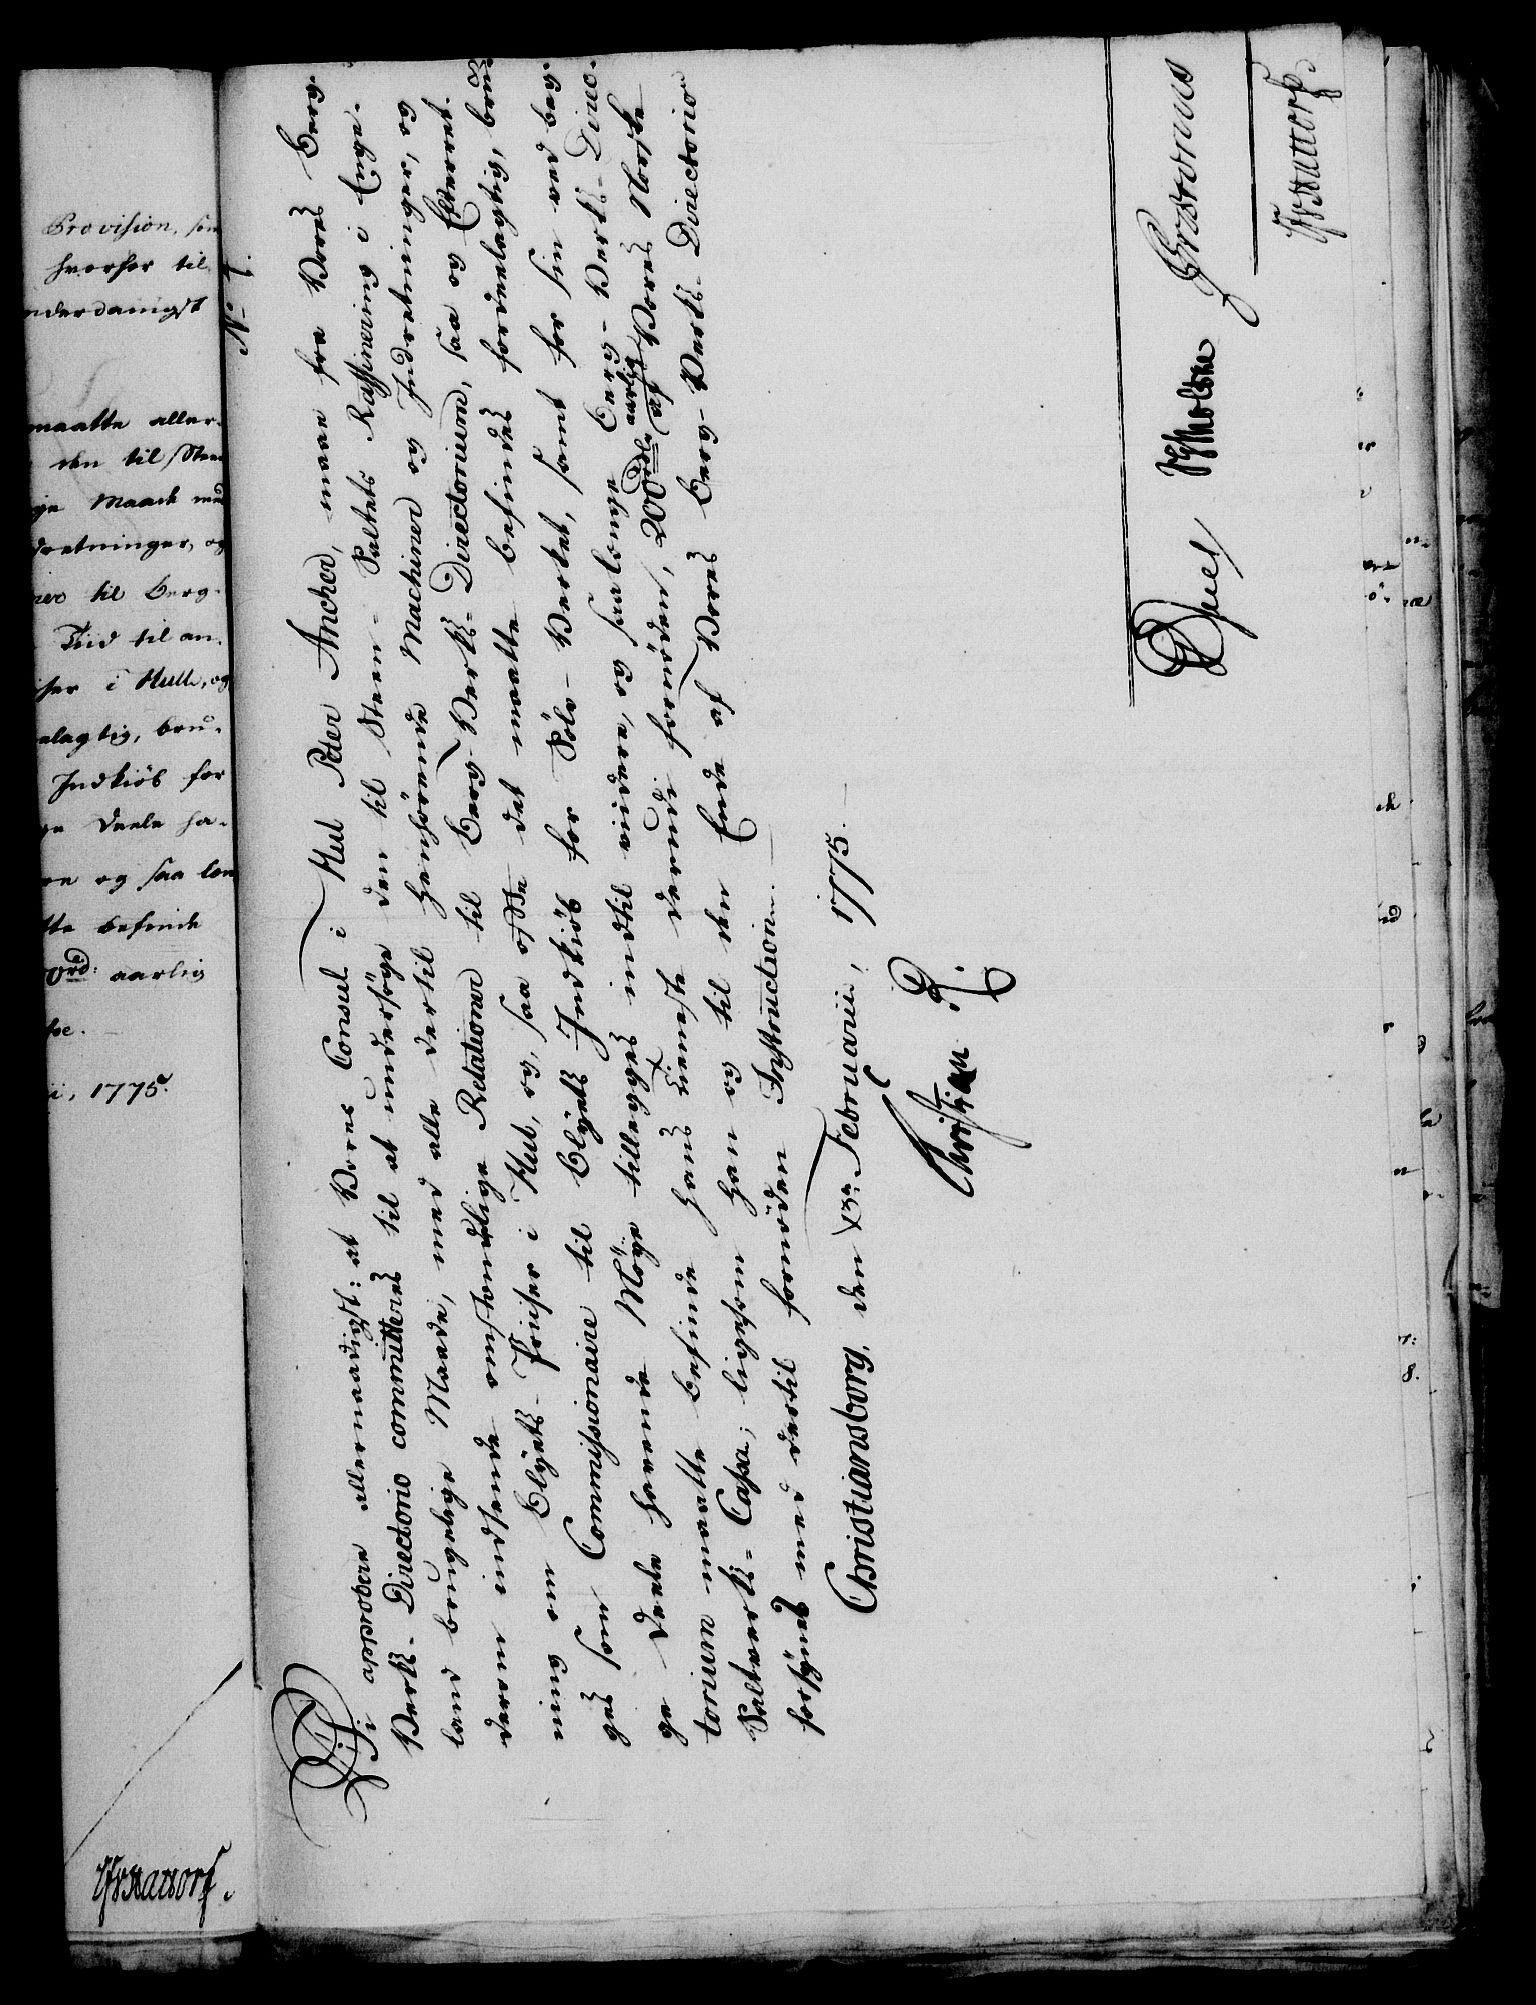 Provision, som
hvorfor til
nderdanigst
maatte aller-
den til Steen
ge Maade med
dretninger, og
ner til Berg-
Tiid til an-
iser i Hull, og
elagtig, bru-
Indkiöb for
ge Deele ha-
re og saa læn
tte befinde
0rd: aarlig
1775.
No 1.
Vi approbere allernaadigst: at Vores Consul i Hul Peter Ancher, maae fra Vores Berg-
Verks-Directorio committeres til at undersöge den til Steen-Saltets Raffinering i Enge-
land brugelige Maade, med alle dertil henhörende Machiner og Indretninger, og
derom indsende omstændelige Relationer til Berg-Verks-Directorium, saa og Efterret-
ning om Blyets-Priiser i Hul, og, saa ofte det maatte befindes fordeelagtig, bru-
ges som Commissionaire til Blyets Indkiöb for Sölv-Verket, samt for sin ved bey-
ge Deele havende Möye tillegges indtil videre, og saalænge Berg-Verks-Direc-
torium maatte befinde hans Tieneste derudi fornöden, 200 rdl. aarlig af Vores Norske
Saltverks-Cassa; ligesom han og til den Ende af Vores Berg-Verks Directorio
forsynes med dertil fornöden Instruction.
Christiansborg, den 13de Februarii, 1775.
Christian R.